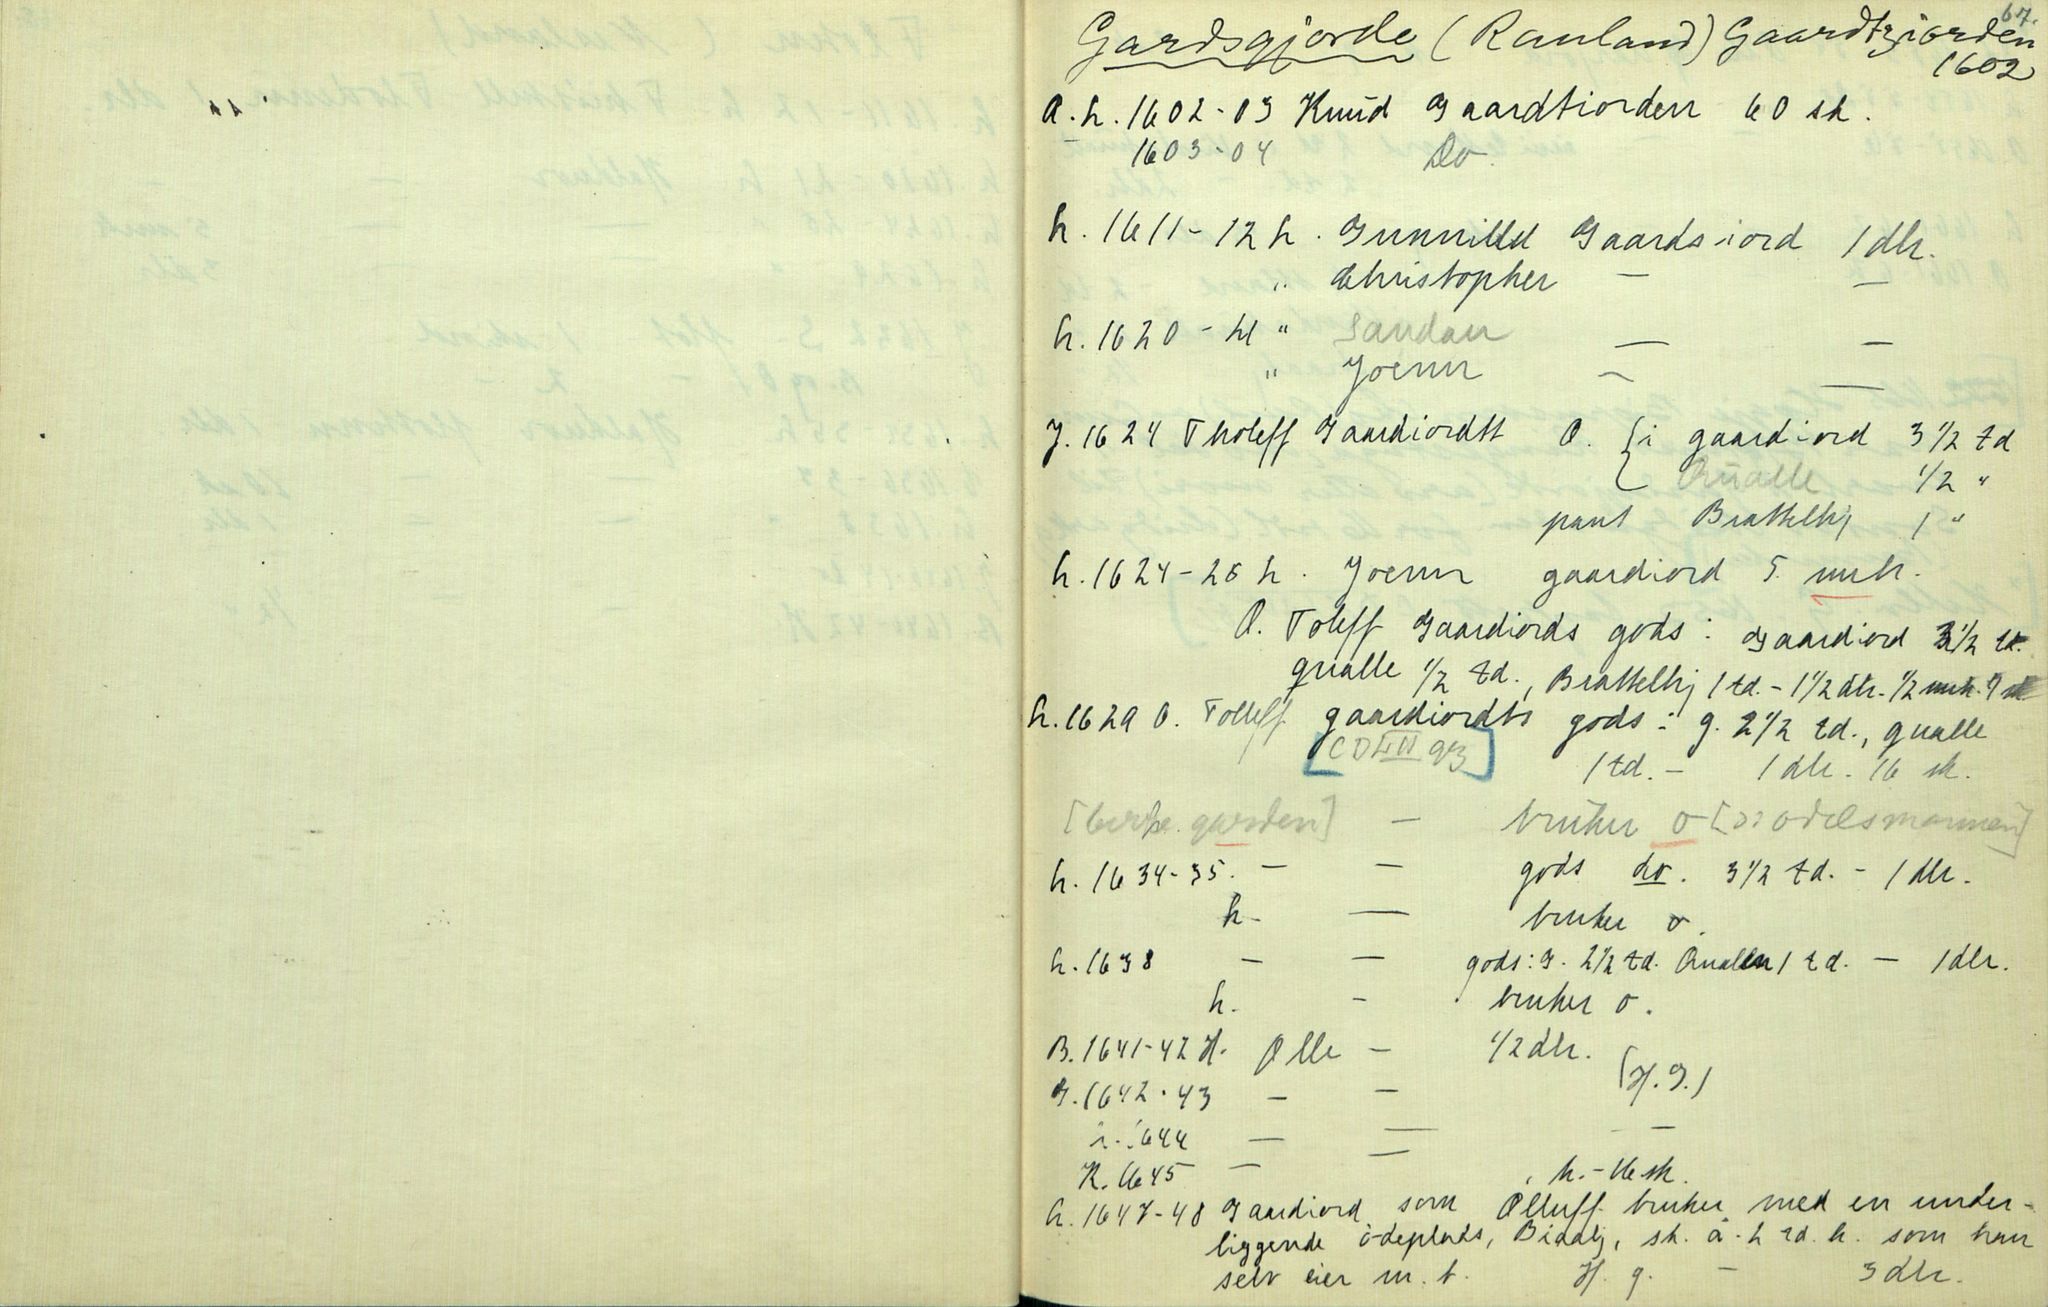 67.
Gardsgjorde (Rauland) Gaardtzjorden
1602
A. h. 1602-03 Knud Gaardtiorden 60 sk.
1603-04 Do
h. 1611-12 h. Gunnilld Gaardsiord 1 dlr.
" Christopher — —
h. 1620-21 " Sandau — —
" Joenn — —
J. 1624 Tholeff Gaardiordtt O. { i gaardiord 3 1/2 td
Qualle 1/2 "
pant Brattelhj 1 "
h. 1624-25 h. Joenn gaardiord 5. mrk.
O. Toleff Gaardiords gods: Gaardiord 3 1/2 td.
qualle 1/2 td., Brattelhj 1 td. - 1 1/2 dlr. 1/2 mrk.
h. 1629 O. Tolleff gaardiordts gods: g. 2 1/2 td., qualle
1 td. - 1 dlr. 16 sk.
garden] — bruker o [ odelsmannen]
h. 1634-35. — — gods do. 3 1/2 td. - 1 dlr.
h. — bruker o.
h. 1638 — — gods: G. 2 1/2 td. Quallen 1 td. — 1 dlr.
h. - bruker o.
B. 1641-42 H. Olle - 1/2 dlr.
G. 1642-43 — — (H.G.)
1644 — — —
K. 1645 — h. - 16 sk.
h. 1647-48 Gaardiord som Olluff bruker med en under-
liggende ödeplads, sk. å. h som han
selv eier m. b. H. g. - 3 dlr.